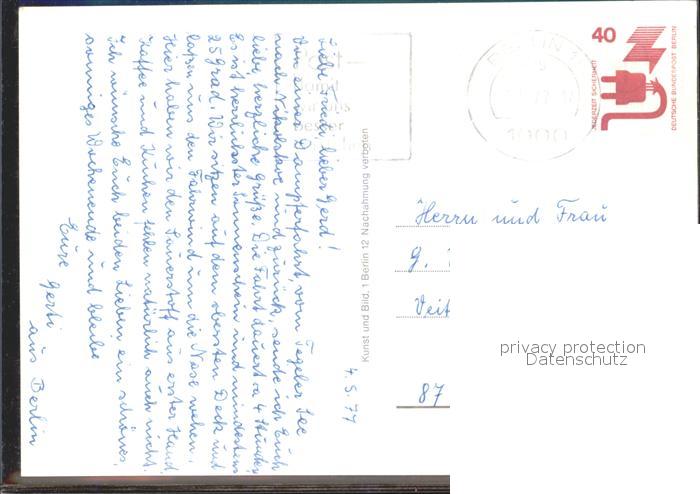 4.5.77
Liebe lieber Gerd!
Von einer Dampferfahrt, vom Tegeler See
nach Nikolskoe und zurück, sende ich Euch
liebe, herzliche Grüße. Die Fahrt dauert ca 4 Stunden
Es ist herrlichster Sonnenschein und mindestens
25 Grad. Wir sitzen auf dem obersten Deck und
laßen uns den Fahrwind um die Nase wehen.
Hier haben wir den Sauerstoff aus erster Hand.
Kaffee und Kuchen fehlen natürlich auch nicht.
Ich wünsche Euch beiden Lieben ein schönes,
sonniges Wochenende und bleibe
Eure Gerti
aus Berlin
Kunst und Bild, 1 Berlin 12 Nachahmung verboten
BERLIN 1
1000
40
JEDERZEIT SICHERHEIT
DEUTSCHE BUNDESPOST BERLIN
Herrn und Frau
G.
Veit
87
privacy protection
Datenschutz